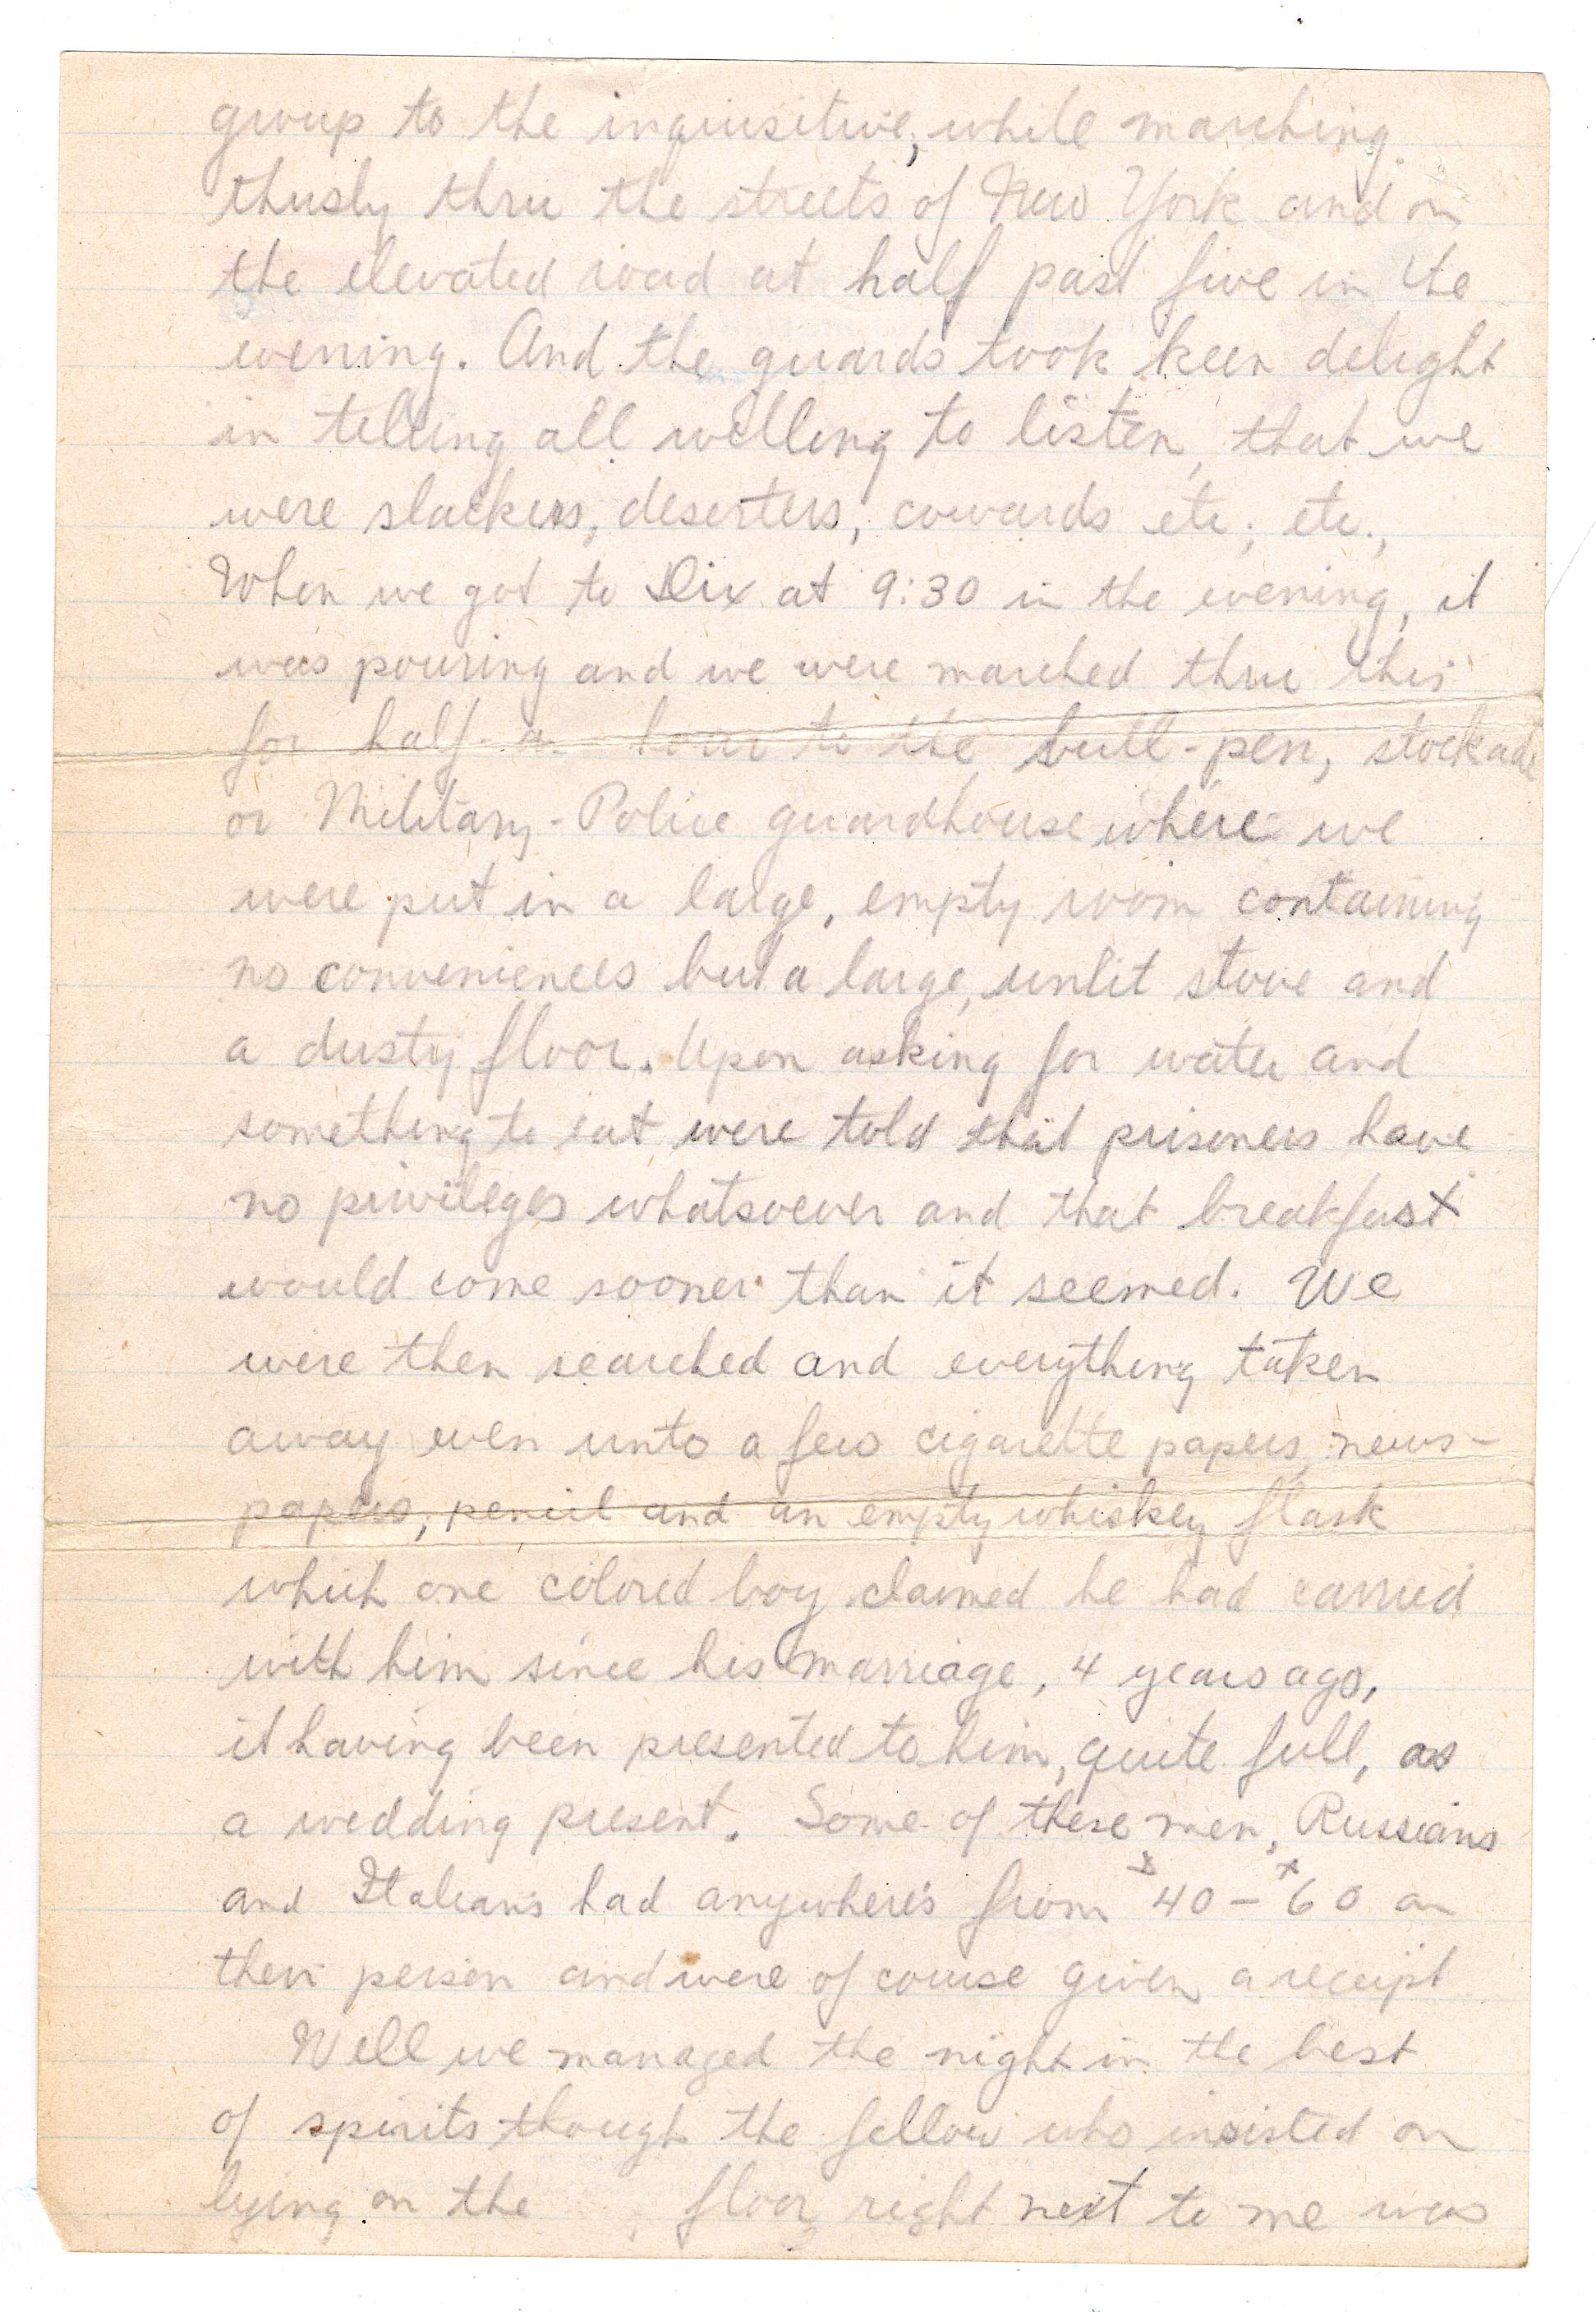 group to the inquisitive, while marching
thusly thru the streets of New York and on
the elevated road at half past five in the
evening. And the guards took keen delight
in telling all willing to listen, that we
were slackers, deserters, cowards etc; etc.,
When we got to Dix at 9:30 in the evening, it
was pouring and we were marched thru this
for half-a- hour to the bull-pen, stockade
or Military-Police guardhouse where we
were put in a large, empty room containing
no conveniences but a large, unlit stove and
a dusty floor. Upon asking for water and
something to eat were told that prisoners have
no privileges whatsoever and that breakfast
would come sooner than it seemed. We
were then searched and everything taken
away even unto a few cigarette papers, news-
papers, pencil and an empty whiskey flask
which one colored boy claimed he had carried
with him since his marriage, 4 years ago,
it having been presented to him, quite full, as
a wedding present. Some of these men, Russians
and Italians had anywheres from $40 - $60 on
their person and were of course given a receipt
Well we managed the night in the best
of spirits though the fellow who insisted on
lying on the floor, right next to me was